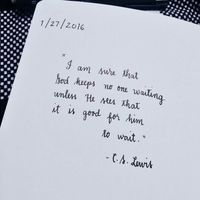 1/27/2016
"
I am sure that
God keeps no one waiting
unless He sees that
it is good for him
to wait."
- C.S. Lewis